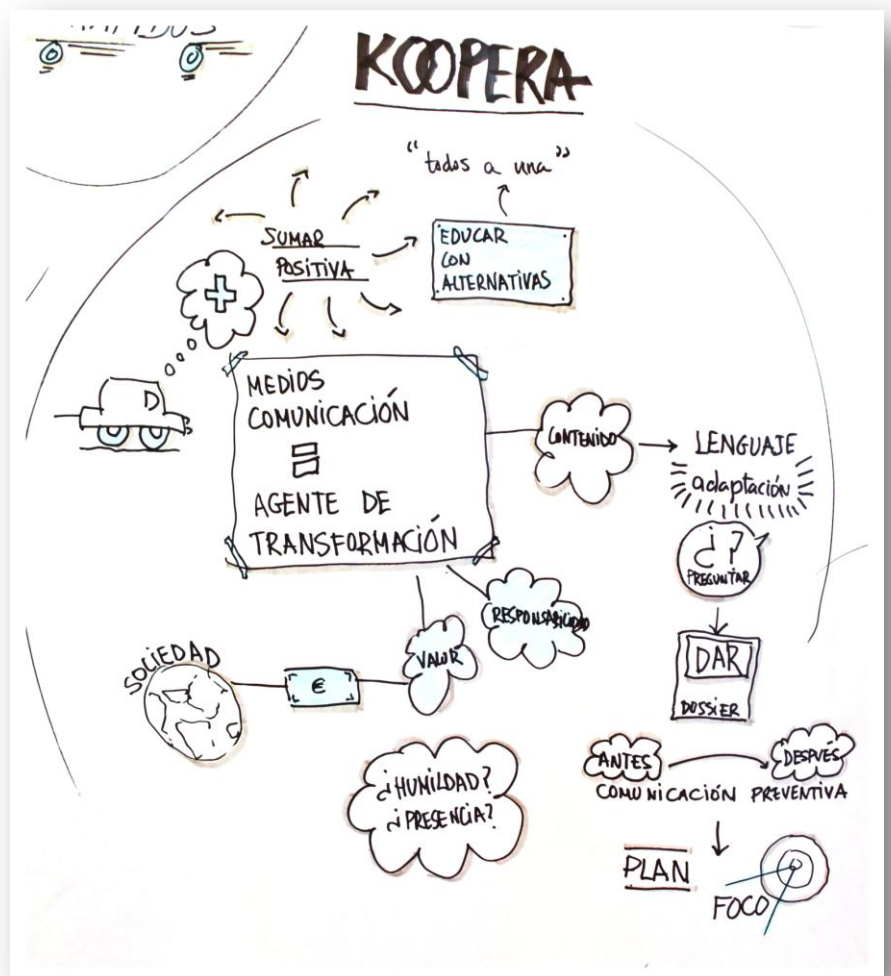 KOOPERA
"todos a una"
SUMAR
POSITIVA
EDUCAR
CON
ALTERNATIVAS
D
MEDIOS
COMUNICACIÓN
=
AGENTE DE
TRANSFORMACIÓN
CONTENIDO
LENGUAJE
adaptación
¿?
PREGUNTAR
DAR
DOSSIER
RESPONSABILIDAD
VALOR
€
SOCIEDAD
¿HUMILDAD?
¿PRESENCIA?
ANTES
DESPUÉS
COMUNICACIÓN PREVENTIVA
PLAN
FOCO